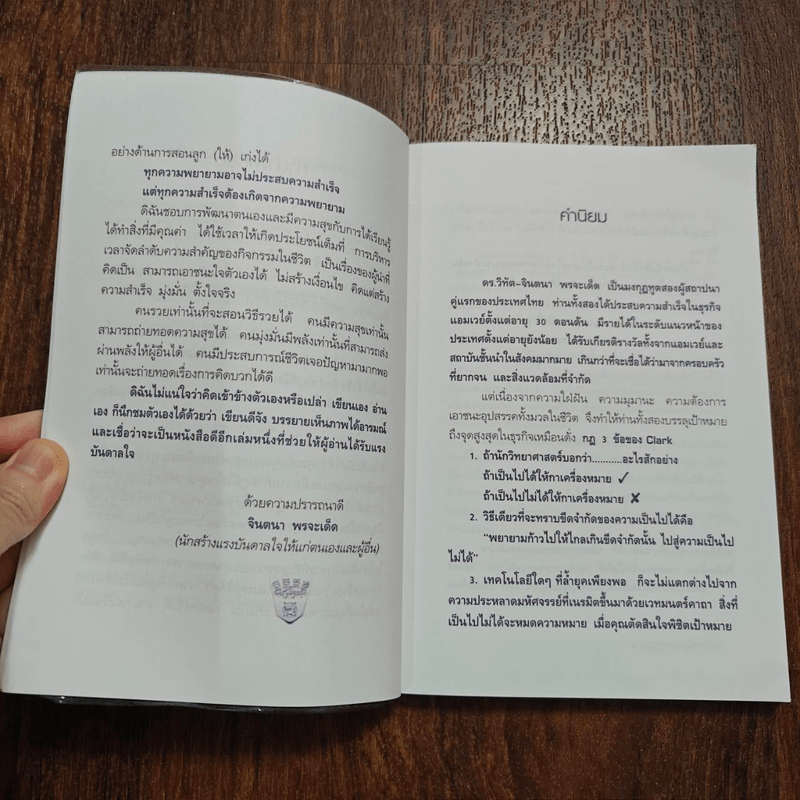 อย่างด้านการสอนลูก (ให้) เก่งได้
ทุกความพยายามอาจไม่ประสบความสำเร็จ
แต่ทุกความสำเร็จต้องเกิดจากความพยายาม
ดิฉันชอบการพัฒนาตนเองและมีความสุขกับการได้เรียนรู้
ได้ทำสิ่งที่มีคุณค่า ได้ใช้เวลาให้เกิดประโยชน์เต็มที่ การบริหาร
เวลาจัดลำดับความสำคัญของกิจกรรมในชีวิต เป็นเรื่องของผู้นำที่
คิดเป็น สามารถเอาชนะใจตัวเองได้ ไม่สร้างเงื่อนไข คิดแต่สร้าง
ความสำเร็จ มุ่งมั่น ตั้งใจจริง
คนรวยเท่านั้นที่จะสอนวิธีรวยได้ คนมีความสุขเท่านั้น
สามารถถ่ายทอดความสุขได้ คนมุ่งมั่นมีพลังเท่านั้นที่สามารถส่ง
ผ่านพลังให้ผู้อื่นได้ คนมีประสบการณ์ชีวิตเจอปัญหามามากพอ
เท่านั้นจะถ่ายทอดเรื่องการคิดบวกได้ดี
ดิฉันไม่แน่ใจว่าคิดเข้าข้างตัวเองหรือเปล่า เขียนเอง อ่าน
เอง ก็นึกชมตัวเองได้ด้วยว่า เขียนดีจัง บรรยายเห็นภาพได้อารมณ์
และเชื่อว่าจะเป็นหนังสือดีอีกเล่มหนึ่งที่ช่วยให้ผู้อ่านได้รับแรง
บันดาลใจ
ด้วยความปรารถนาดี
จินตนา พรจะเด็ด
(นักสร้างแรงบันดาลใจให้แก่ตนเองและผู้อื่น)
คำนิยม
ดร.วิทัต-จินตนา พรจะเด็ด เป็นมงกุฎทูตสองผู้สถาปนา
คู่แรกของประเทศไทย ท่านทั้งสองได้ประสบความสำเร็จในธุรกิจ
แอมเวย์ตั้งแต่อายุ 30 ตอนต้น มีรายได้ในระดับแนวหน้าของ
ประเทศตั้งแต่อายุยังน้อย ได้รับเกียรติรางวัลทั้งจากแอมเวย์และ
สถาบันชั้นนำในสังคมมากมาย เกินกว่าที่จะเชื่อได้ว่ามาจากครอบครัว
ที่ยากจน และสิ่งแวดล้อมที่จำกัด
แต่เนื่องจากความใฝ่ฝัน ความมุมานะ ความต้องการ
เอาชนะอุปสรรคทั้งมวลในชีวิต จึงทำให้ท่านทั้งสองบรรลุเป้าหมาย
ถึงจุดสูงสุดในธุรกิจเหมือนดั่ง กฎ 3 ข้อของ Clark
1. ถ้านักวิทยาศาสตร์บอกว่า...........อะไรสักอย่าง
ถ้าเป็นไปได้ให้กาเครื่องหมาย ✓
ถ้าเป็นไปไม่ได้ให้กาเครื่องหมาย ✗
2. วิธีเดียวที่จะทราบขีดจำกัดของความเป็นไปได้คือ
"พยายามก้าวไปให้ไกลเกินขีดจำกัดนั้น ไปสู่ความเป็นไป
ไม่ได้"
3. เทคโนโลยีใดๆ ที่ล้ำยุคเพียงพอ ก็จะไม่แตกต่างไปจาก
ความประหลาดมหัศจรรย์ที่เนรมิตขึ้นมาด้วยเวทมนตร์คาถา สิ่งที่
เป็นไปไม่ได้จะหมดความหมาย เมื่อคุณตัดสินใจพิชิตเป้าหมาย